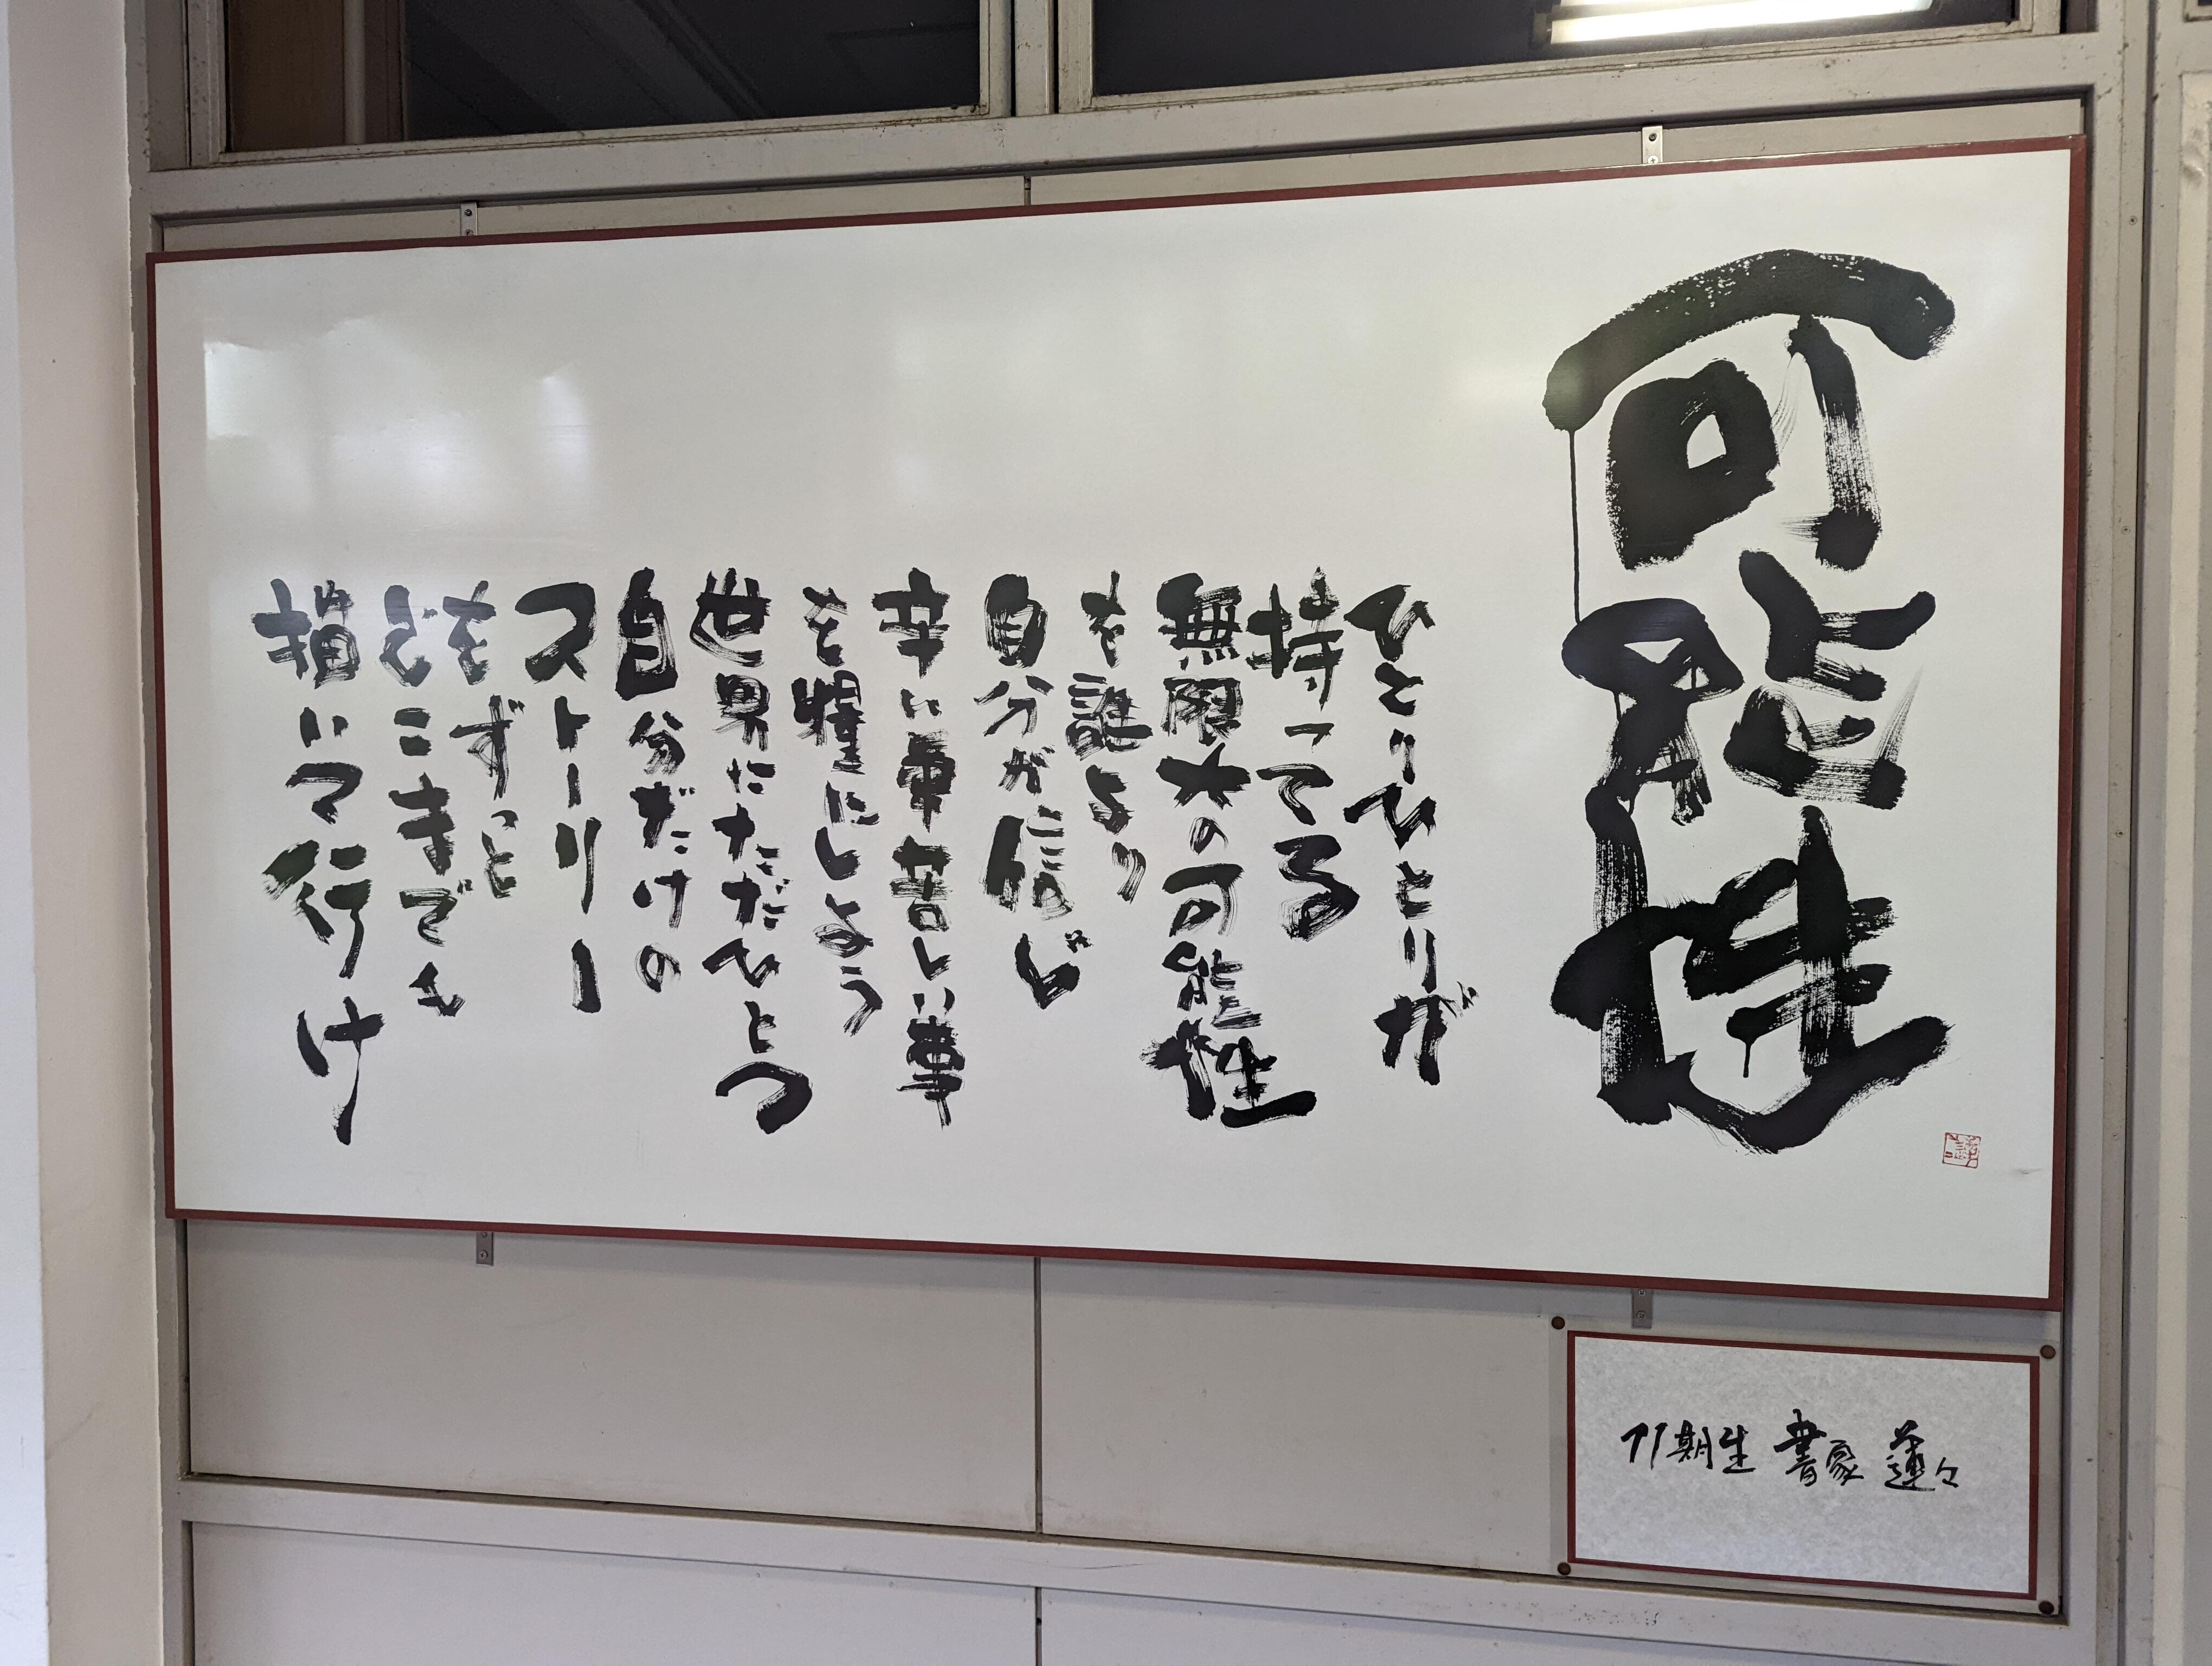 可能性
ひとりひとりが
持ってる
無限大の可能性
を誰より
自分が信じ
辛い事苦しい事
を糧にしよう
世界にただひとつ
自分だけの
ストーリー
をずっと
どこまでも
描いて行け
11期生 書家 蓮々